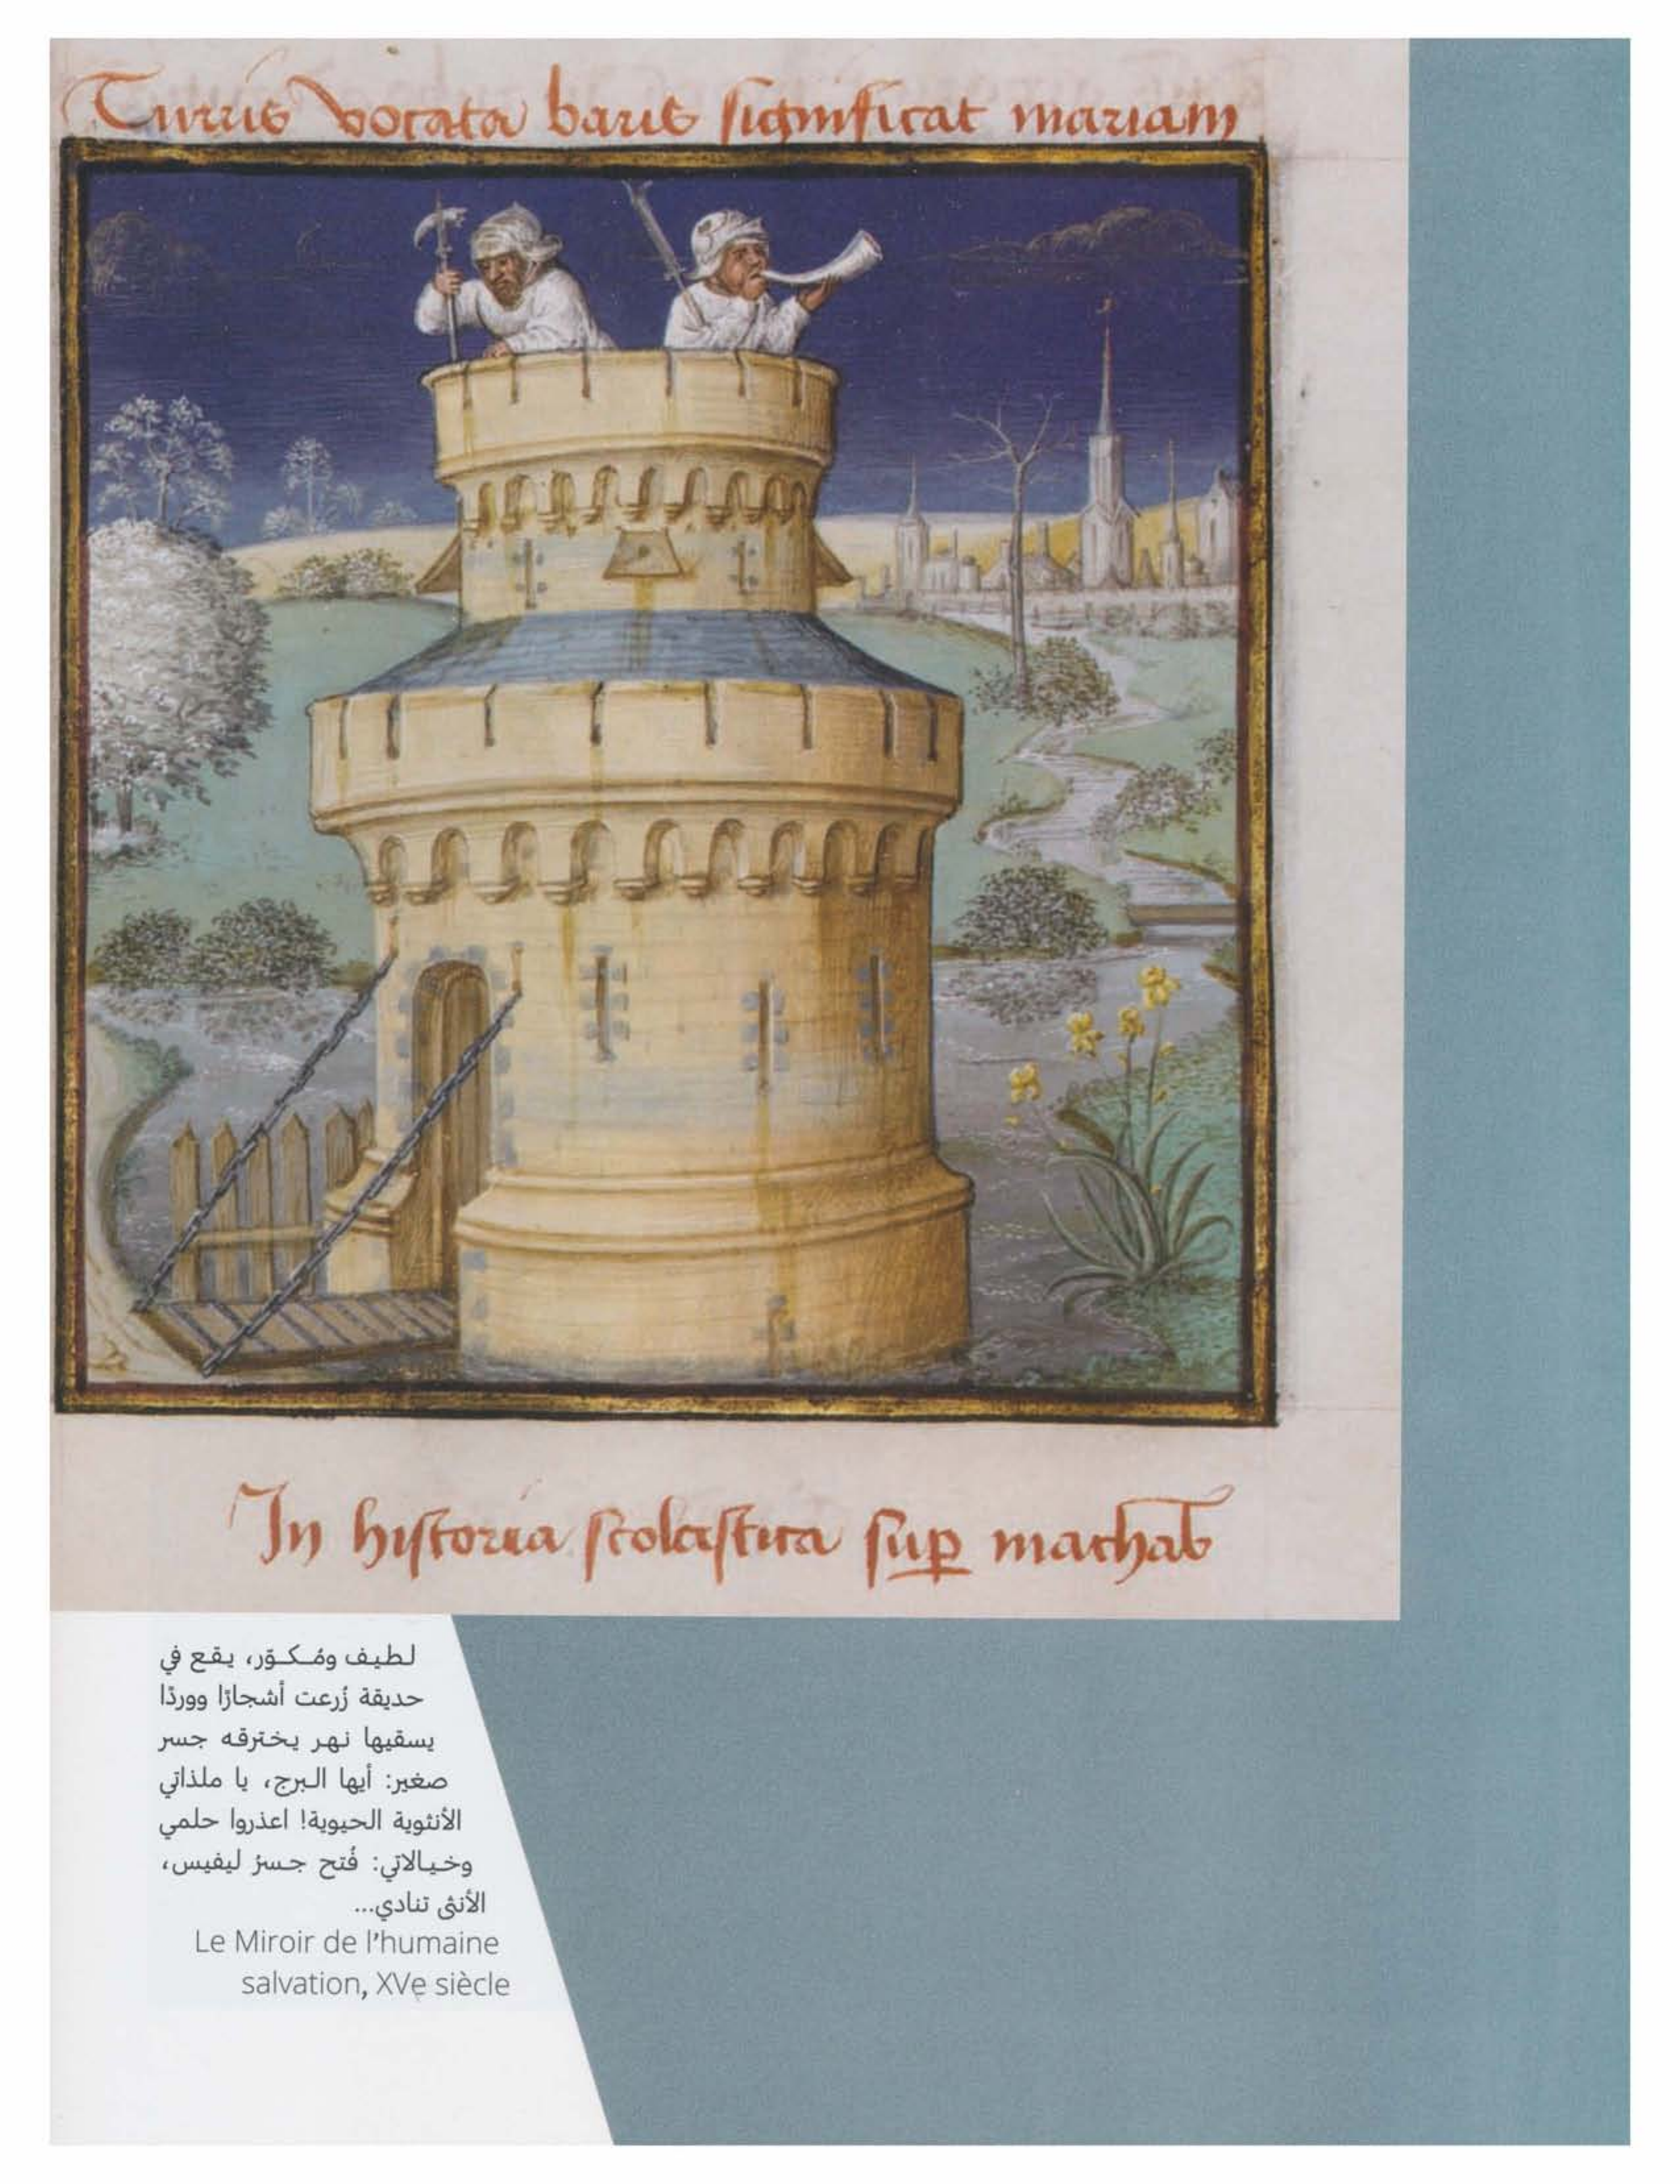 Turris vocata baris significat mariam
In historia scolastica sup machab
لطيف ومُكوّر، يقع في
حديقة زُرعت أشجارًا ووردًا
يسقيها نهر يخترقه جسر
صغير: أيها البرج، يا ملذاتي
الأنثوية الحيوية! اعذروا حلمي
وخيالاتي: فُتح جسرُ ليفيس،
الأنثى تنادي...
Le Miroir de l'humaine
salvation, XVe siècle